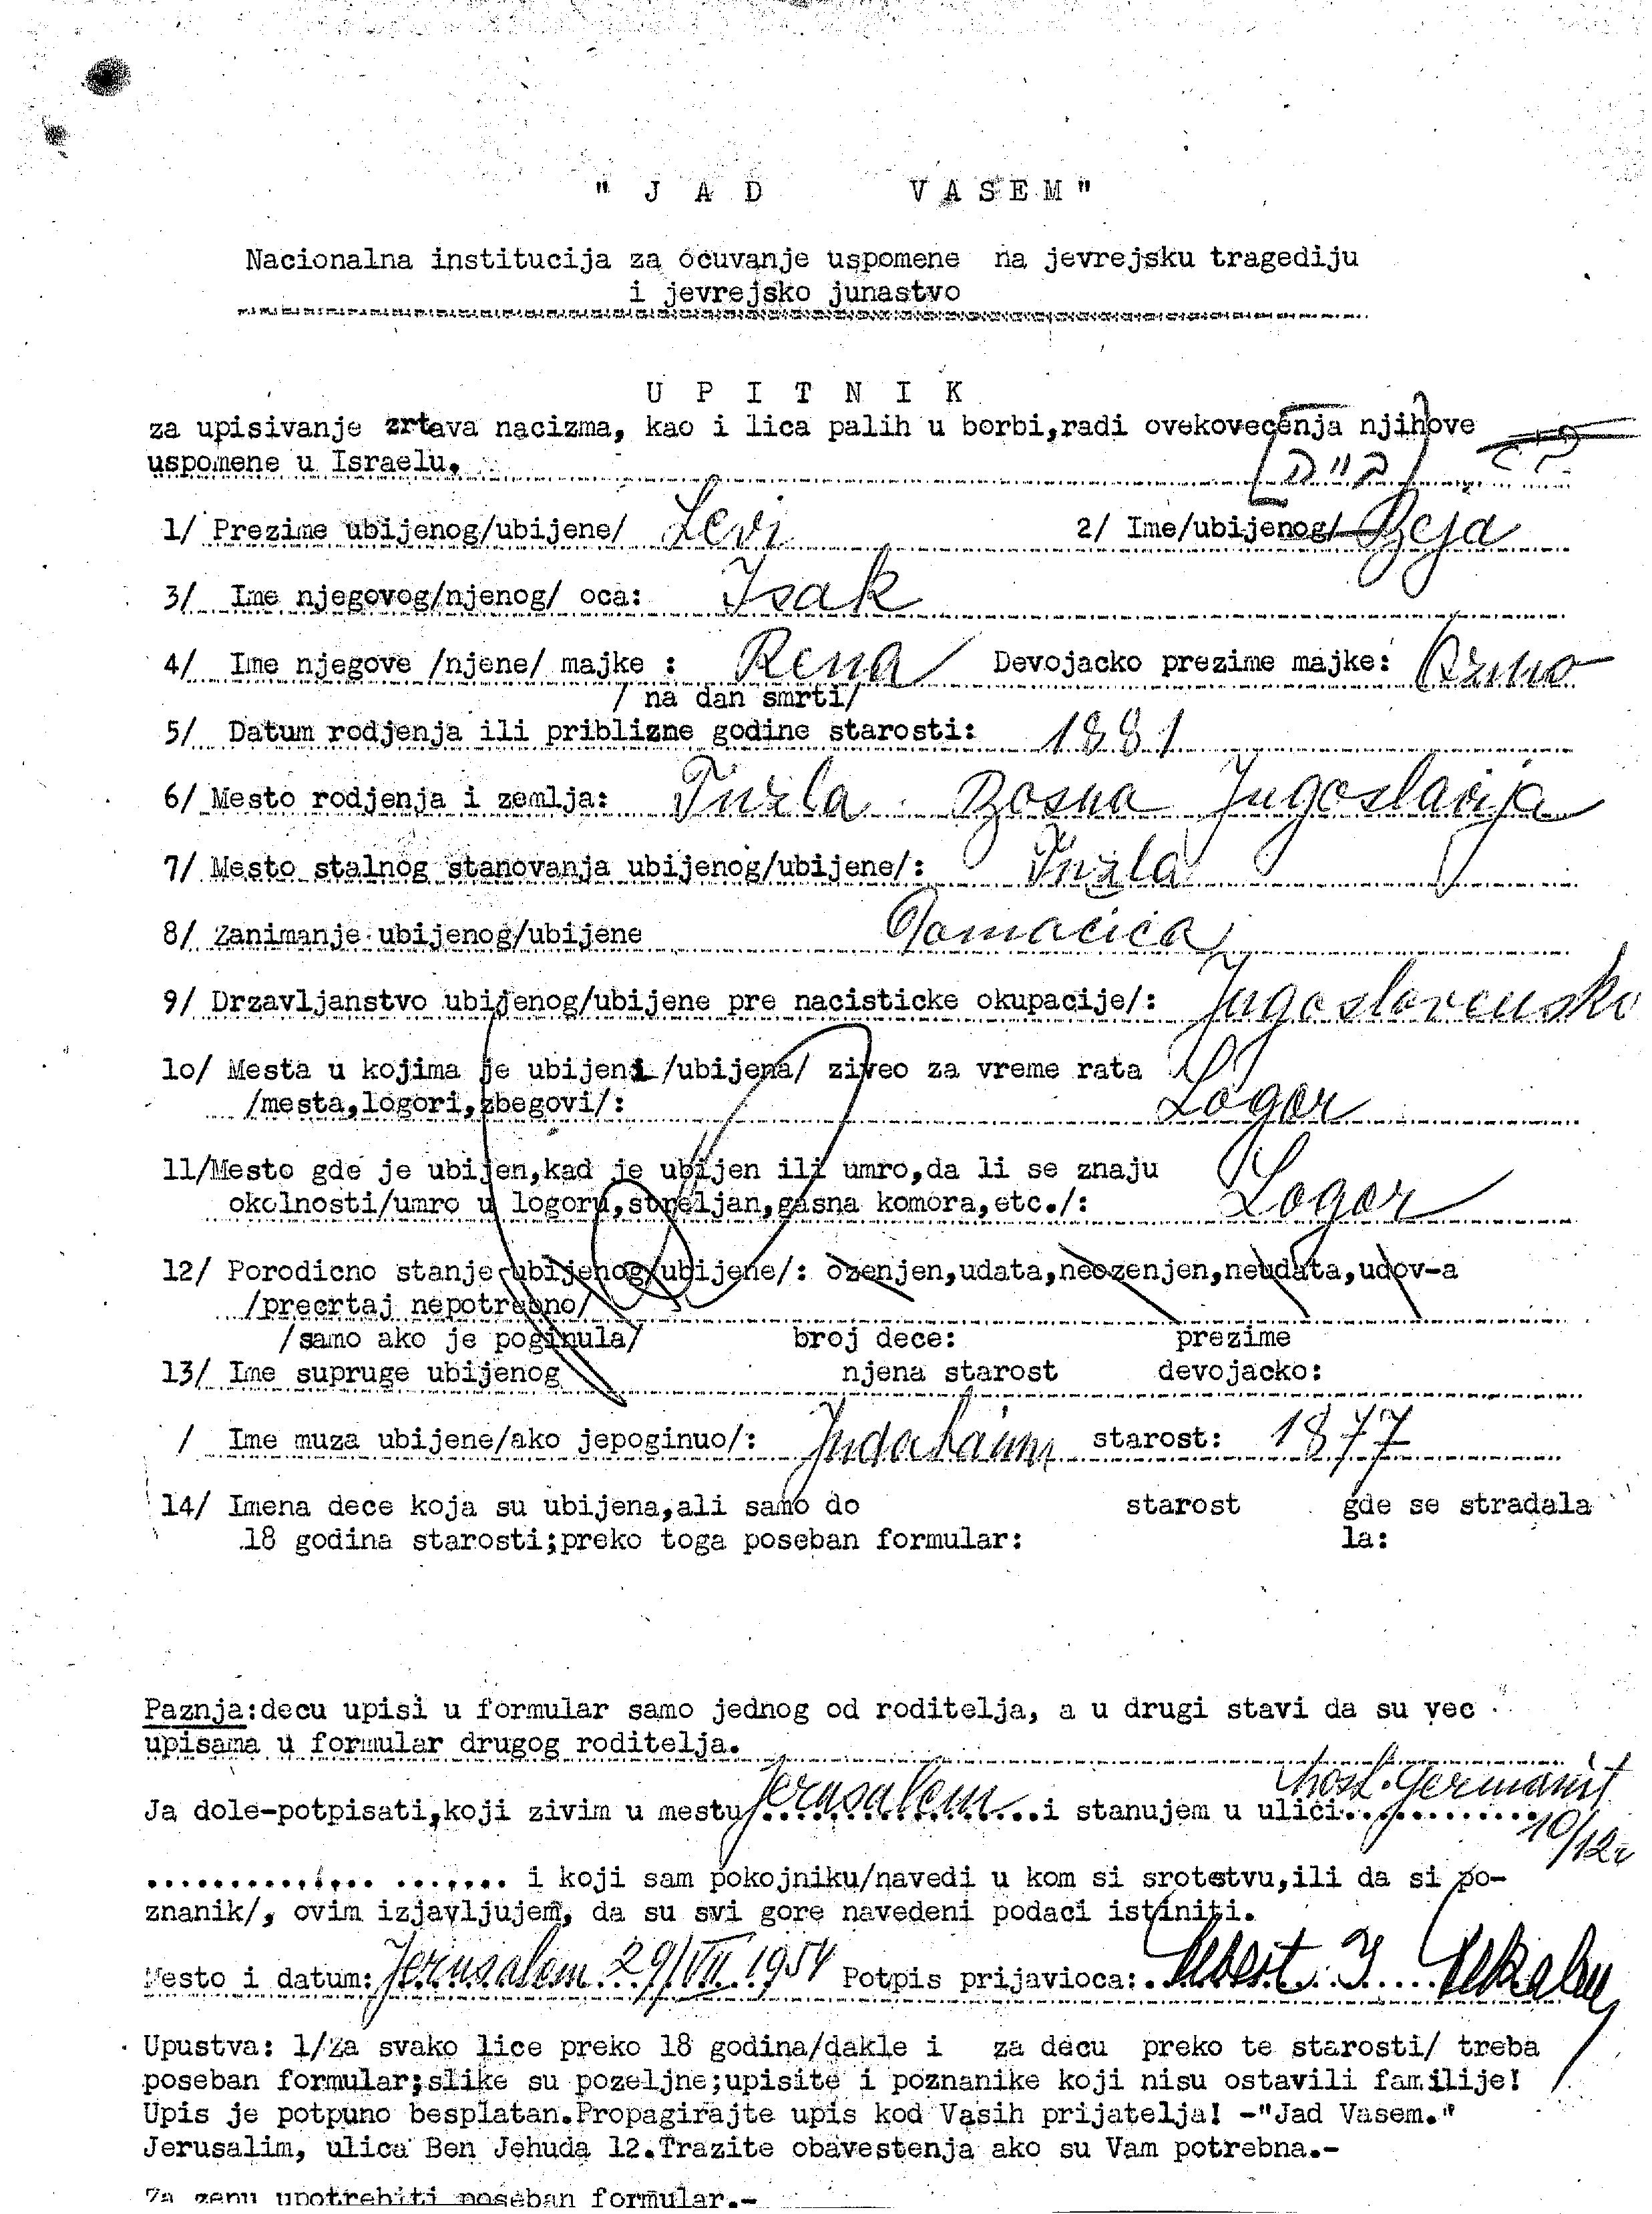 " J A D   V A S E M "
Nacionalna institucija za ocuvanje uspomene na jevrejsku tragediju
i jevrejsko junastvo
U P I T N I K
za upisivanje zrtava nacizma, kao i lica palih u borbi,radi ovekovecenja njihove
uspomene u Israelu.
1/ Prezime ubijenog/ubijene/ Levi 2/ Ime/ubijenog/ Beja
3/ Ime njegovog/njenog/ oca: Isak
4/ Ime njegove /njene/ majke : Rena Devojacko prezime majke: Ozmo
/ na dan smrti/
5/ Datum rodjenja ili priblizne godine starosti: 1881
6/ Mesto rodjenja i zemlja: Tuzla Bosna Jugoslavija
7/ Mesto stalnog stanovanja ubijenog/ubijene/: Tuzla
8/ Zanimanje ubijenog/ubijene Domacica
9/ Drzavljanstvo ubijenog/ubijene pre nacisticke okupacije/: Jugoslovensko
lo/ Mesta u kojima je ubijeni /ubijena/ ziveo za vreme rata
/mesta,logori,zbegovi/: Logor
11/Mesto gde je ubijen,kad je ubijen ili umro,da li se znaju
okolnosti/umro u logoru,streljan,gasna komora,etc./: Logor
12/ Porodicno stanje ubijenog/ubijene/: ozenjen,udata,neozenjen,neudata,udov-a
/precrtaj nepotrebno/
/samo ako je poginula/ broj dece: prezime
13/ Ime supruge ubijenog njena starost devojacko:
/ Ime muza ubijene/ako jepoginuo/: Juda Haim starost: 1877
14/ Imena dece koja su ubijena,ali samo do starost gde se stradala
18 godina starosti;preko toga poseban formular: la:
Paznja:decu upisi u formular samo jednog od roditelja, a u drugi stavi da su vec
upisama u formular drugog roditelja.
Ja dole-potpisati,koji zivim u mestu Jerusalem i stanujem u ulici Germanit
10/12
i koji sam pokojniku/navedi u kom si srotstvu,ili da si po-
znanik/, ovim izjavljujem, da su svi gore navedeni podaci istiniti.
Mesto i datum: Jerusalem 29/VII 1954 Potpis prijavioca:
Upustva: 1/Za svako lice preko 18 godina/dakle i za decu preko te starosti/ treba
poseban formular;slike su pozeljne;upisite i poznanike koji nisu ostavili familije!
Upis je potpuno besplatan.Propagirajte upis kod Vasih prijatelja! -"Jad Vasem."
Jerusalim, ulica Ben Jehuda 12.Trazite obavestenja ako su Vam potrebna.-
Za zenu upotrebiti poseban formular.-